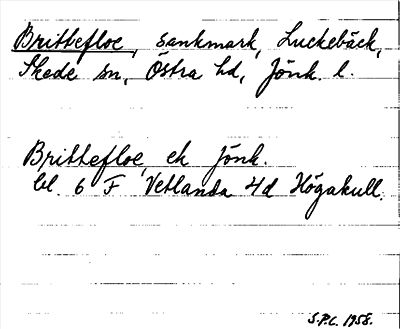 Brittefloe, sankmark, Luckebäck,
Skede sn, Östra hd, Jönk. l.
Brittefloe, ek Jönk.
bl. 6 F Vetlanda 4d Högakull.
S.P.L. 1958.